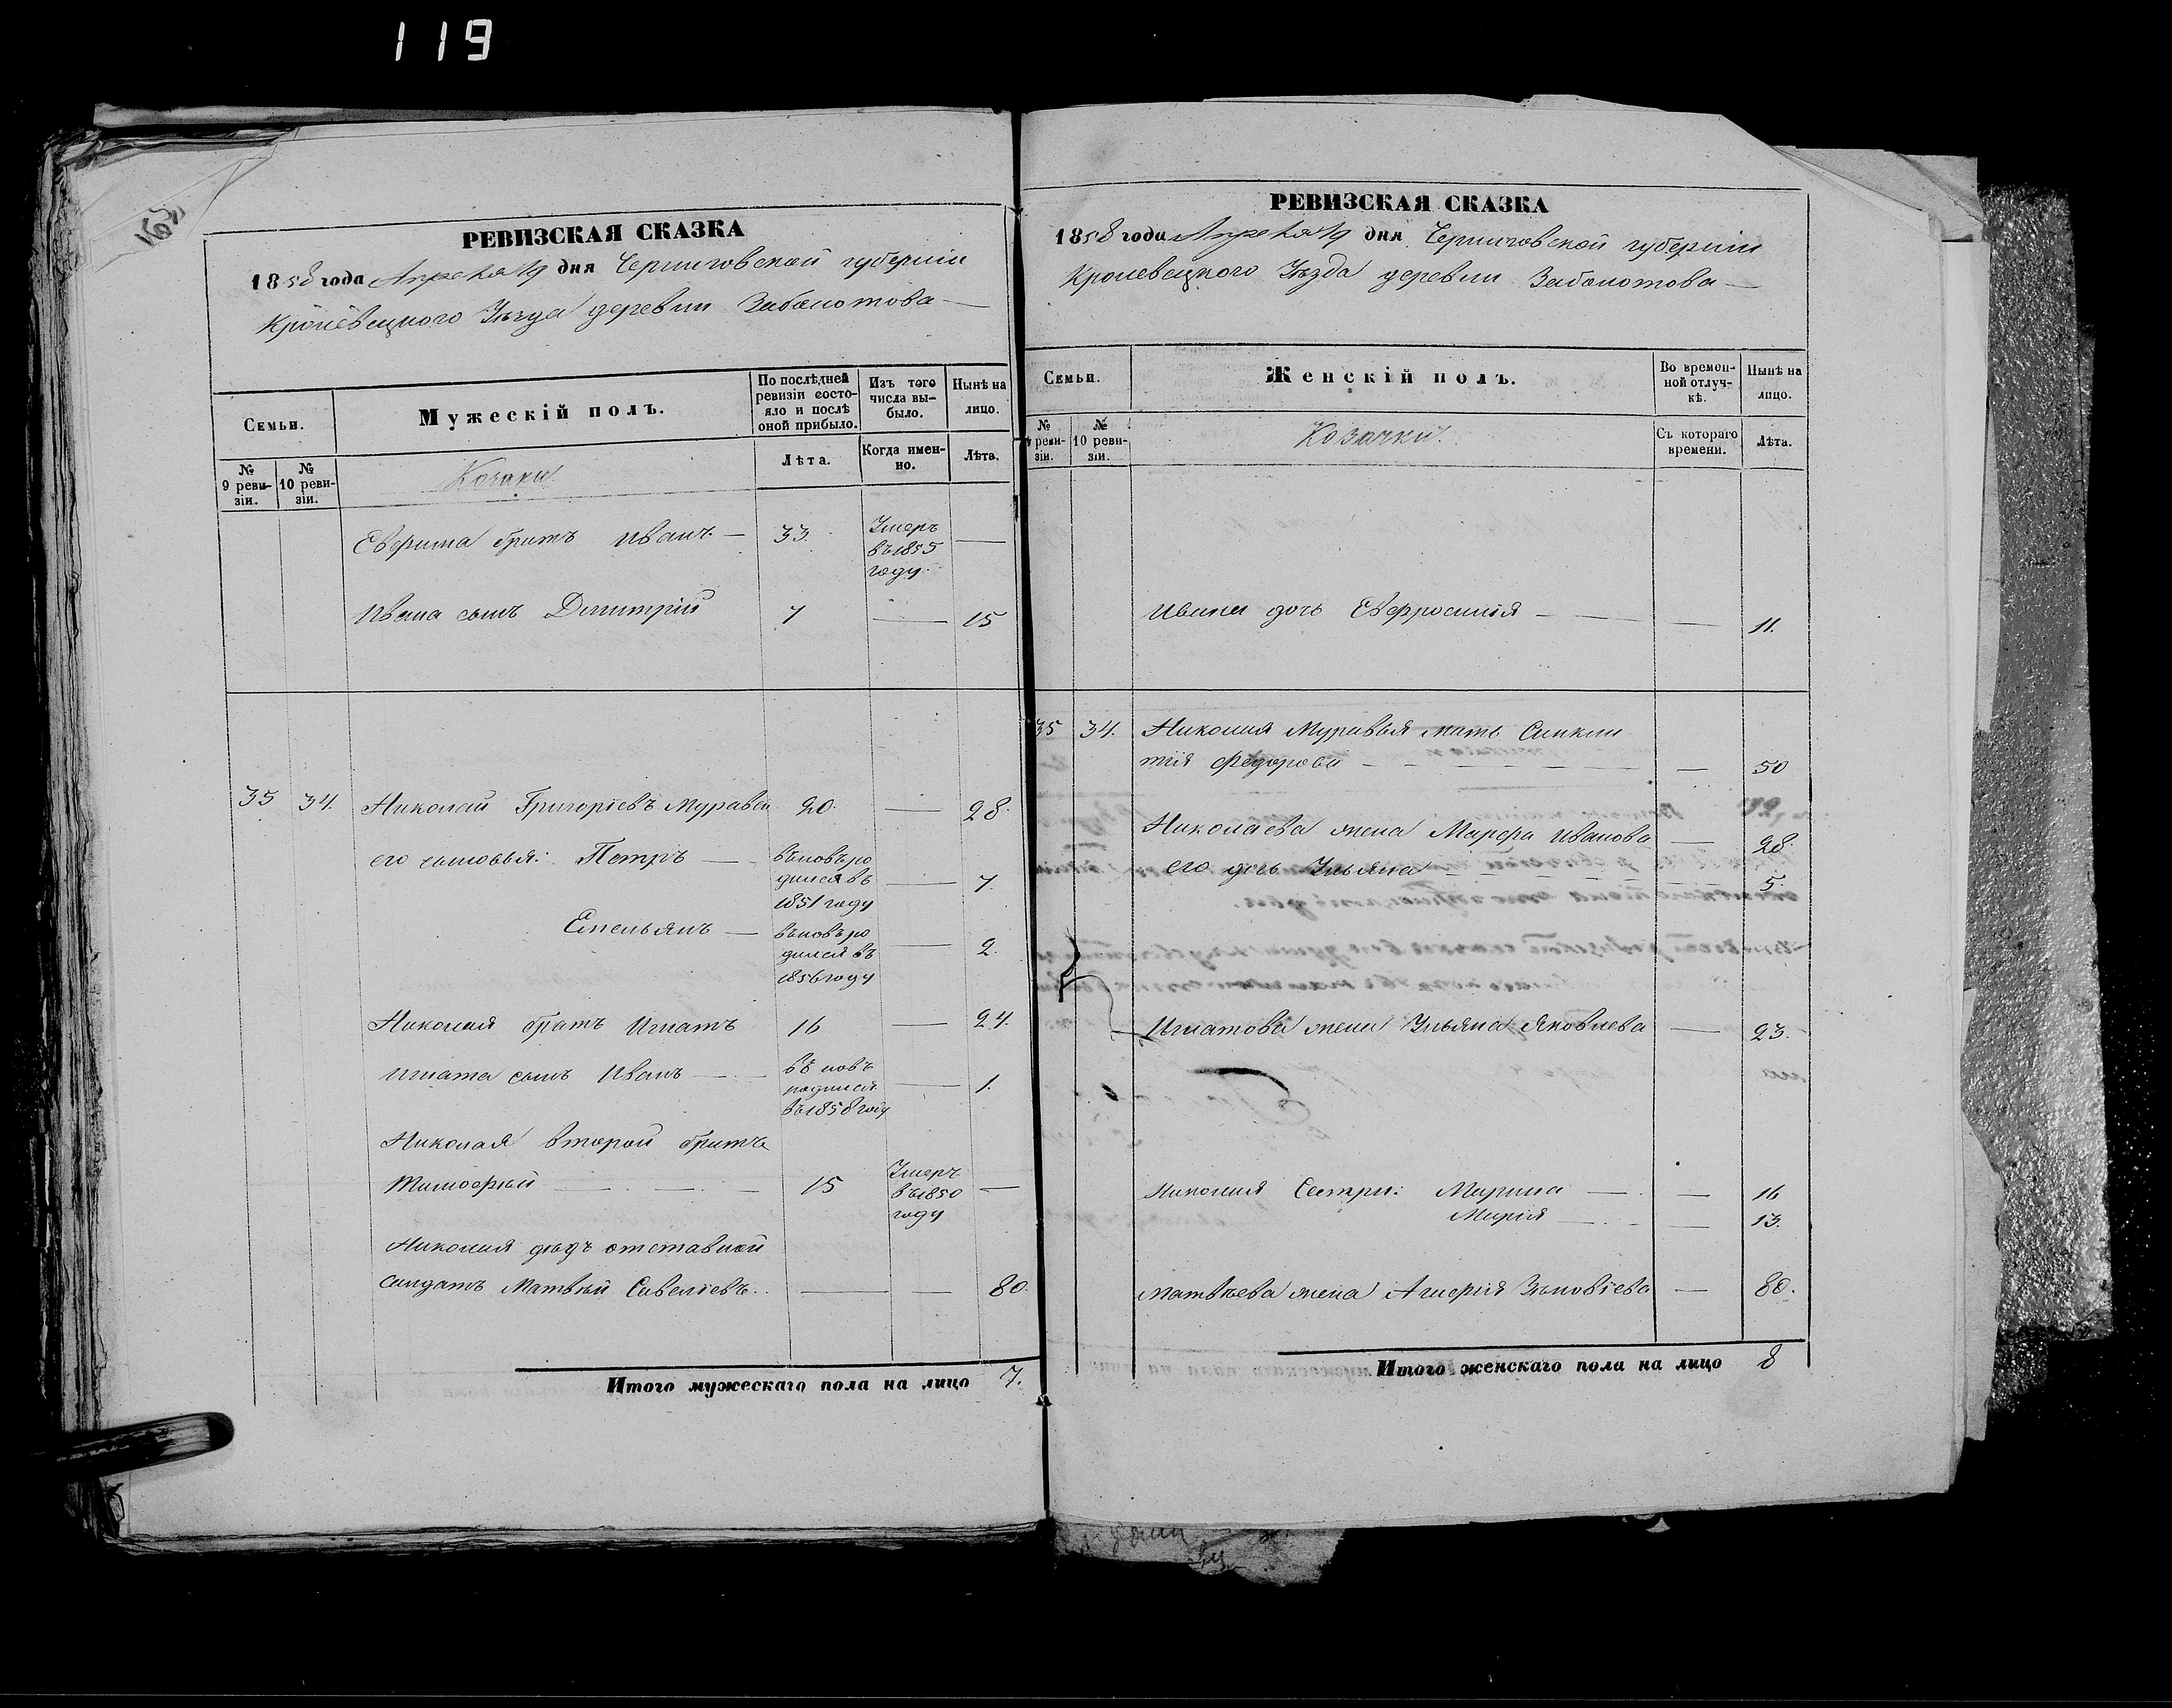 119
РЕВИЗСКАЯ СКАЗКА
1858 года Апреля 19 дня Черниговской губернии
Кролевецкого Уезда деревни Заболотова —
Семьи.
Мужескій полъ.
По послѣдней ревизіи состояло и послѣ оной прибыло.
Изъ того числа выбыло.
Нынѣ на лицо.
№ 9 ревизіи.
№ 10 ревизіи.
Козаки.
Лѣта.
Когда именно.
Лѣта.
Евфима братъ Иванъ — 33. Умеръ въ 1855 году —
Ивана сынъ Димитрій 7 — 15
35 34. Николай Григоріевъ Муравей 20. — 28.
его сыновья: Петръ — вновь родился въ 1851 году — 7.
Емельянъ — вновь родился въ 1856 году — 2.
Николая братъ Игнатъ 16 — 24.
Игната сынъ Иванъ — въ новь родился въ 1858 году — 1.
Николая второй братъ
Тимофей — 15 Умеръ въ 1850 году —
Николая дѣдъ отставной
солдатъ Матвѣй Савеліевъ. — — 80.
Итого мужескаго пола на лицо 7.
РЕВИЗСКАЯ СКАЗКА
1858 года Апреля 19 дня Черниговской губерніи
Кролевецкого Уѣзда деревни Заболотова —
Семьи.
Женскій полъ.
Во временной отлучкѣ.
Нынѣ на лицо.
№ 9 ревизіи.
№ 10 ревизіи.
Козачки.
Съ котораго времени.
Лѣта.
Ивана дочь Евфросинія — — 11.
35 34. Николая Муравья мать Синкли
тія Федорова — — 50
Николаева жена Марфа Иванова — 28.
его дочь Ульяна — 5.
Игнатова жена Ульяна Яковлева — 23.
Николая Сестры: Марина — — 16
Марія — — 13.
Матвѣева жена Агафія Зѣновіева — 80.
Итого женскаго пола на лицо 8